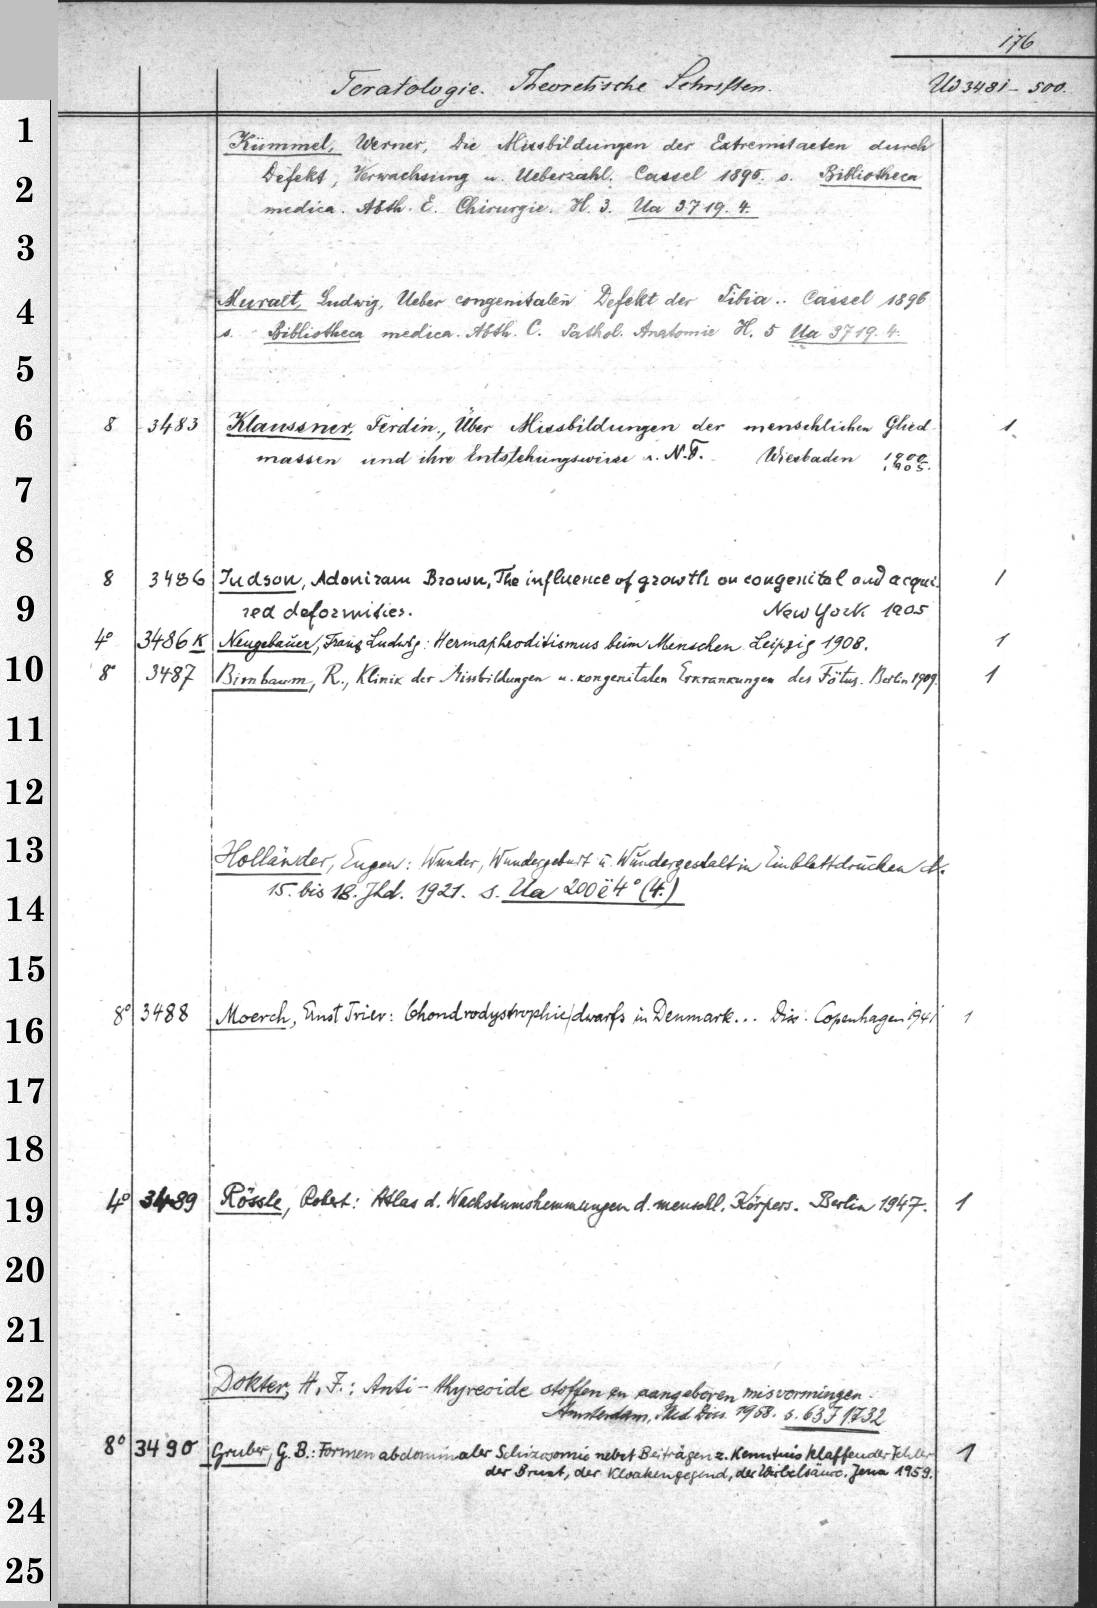 176
Teratologie. Theoretische Schriften. Ud 3481–500.
1
Kümmel, Werner, Die Missbildungen der Extremitaeten durch
2
Defekt, Verwachsung u. Ueberzahl. Cassel 1895. s. Bibliotheca
medica. Abth. E. Chirurgie. H. 3. Ua 3719. 4.
3
4
Muralt, Ludwig, Ueber congenitalen Defekt der Tibia.. Cassel 1896
s. Bibliotheca medica. Abth. C. Pathol. Anatomie H. 5 Ua 3719. 4.
5
6
8 3483 Klaussner, Ferdin., Über Missbildungen der menschlichen Glied 1
massen und ihre Entstehungsweise u. N.F. Wiesbaden 1900 1905.
7
8
8 3486 Judson, Adoniram Brown, The influence of growth on congenital and acqui- 1
9
red deformities. New York 1905
4° 3486 K Neugebauer, Franz Ludwig: Hermaphroditismus beim Menschen. Leipzig 1908. 1
10
8° 3487 Birnbaum, R., Klinik der Missbildungen u. kongenitalen Erkrankungen des Fötus. Berlin 1909. 1
11
12
13
Holländer, Eugen: Wunder, Wundergeburt u. Wundergestalt in Einblattdrucken d.
14
15. bis 18. Jhd. 1921. s. Ua 200ë 4° (4.)
15
16
8° 3488 Moerch, Ernst Trier: Chondrodystrophic/dwarfs in Denmark... Diss. Copenhagen 1941 1
17
18
19
4° 3489 Rössle, Robert: Atlas d. Wachstumshemmungen d. menschl. Körpers. Berlin 1947. 1
20
21
22
Dokter, H. F.: Anti-thyreoide stoffen en aangeboren misvormingen.
Amsterdam, Med Diss. 1958. s. 63 J 1732
23
8° 3490 Gruber, G. B.: Formen abdominaler Schizosomie nebst Beiträgen z. Kenntnis klaffender Fehler 1
der Brust, der Kloakengegend, der Wirbelsäule. Jena 1959.
24
25